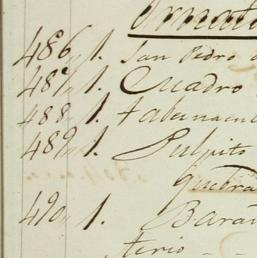 Ornato
486 1. San Pedro
487 1. Cuadro
488 1. tabernacu
489 1. Pulpito
quebra
490 1. Bara
terio - -